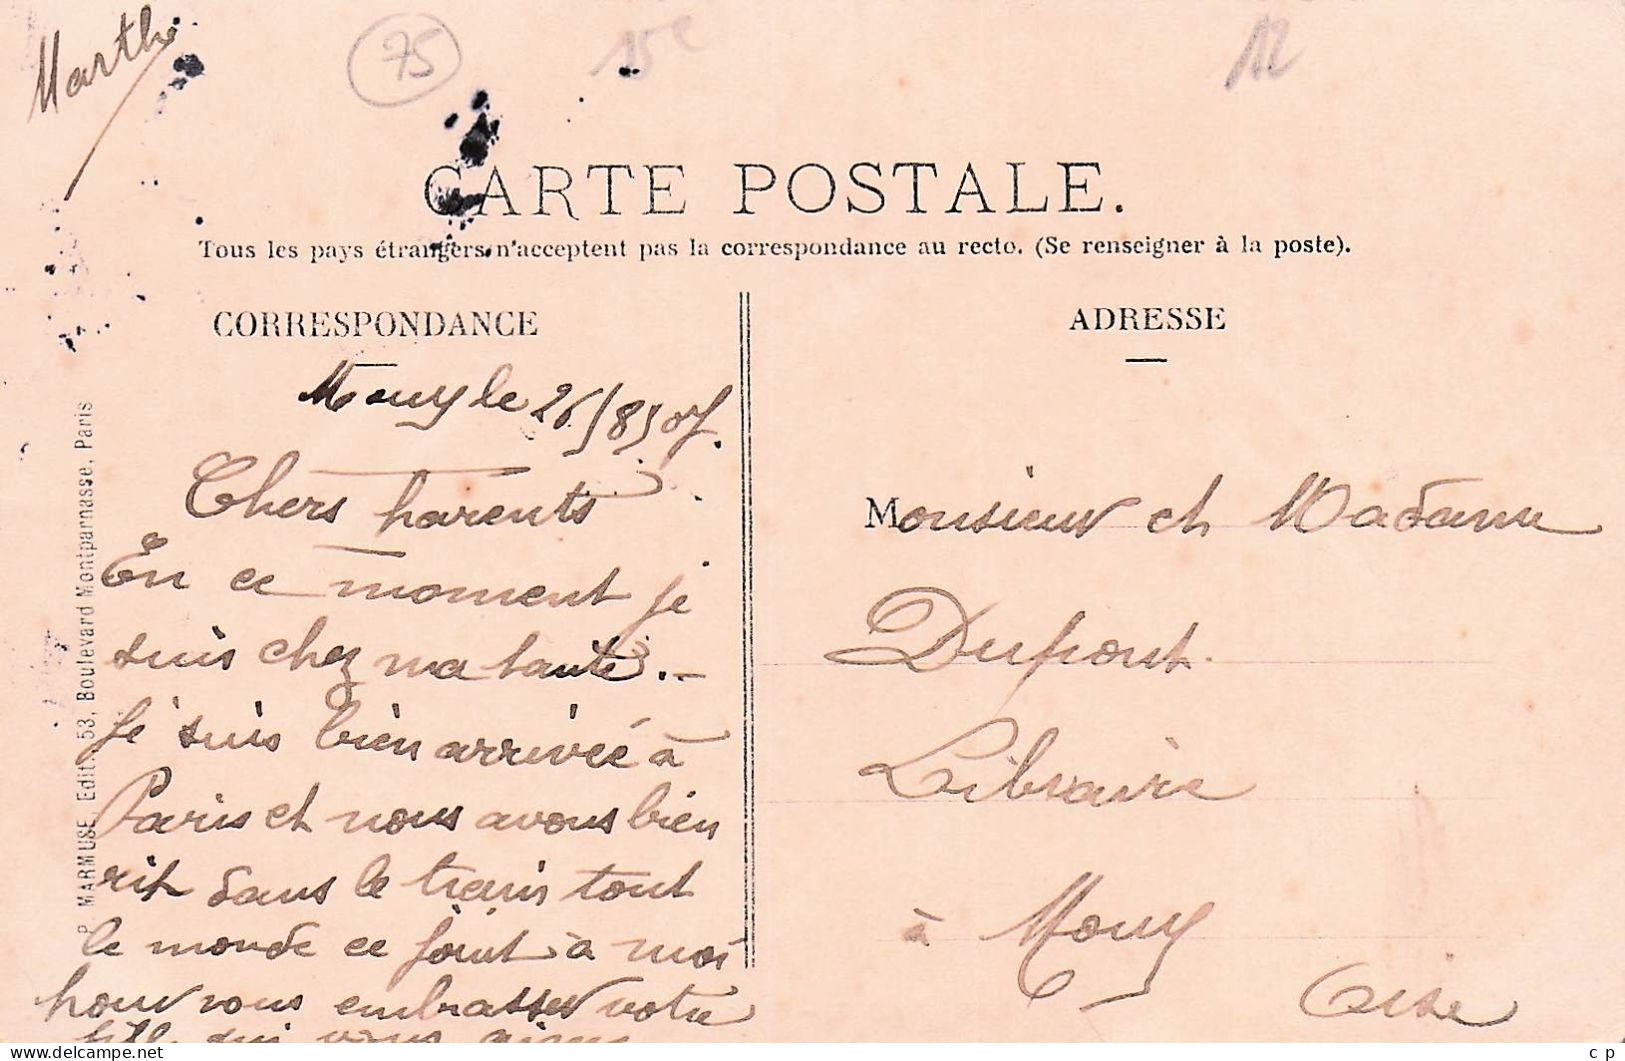 Marthe
75
15e
12
CARTE POSTALE.
Tous les pays étrangers n'acceptent pas la correspondance au recto. (Se renseigner à la poste).
CORRESPONDANCE
Mouy le 26/8/07.
Chers parents
En ce moment je
suis chez ma tante.-
Je suis bien arrivée à
Paris et nous avons bien
rit dans le train tout
le monde ce joint à moi
pour vous embrasser votre
fille qui vous aime
P. MARMUSE, Edit., 53, Boulevard Montparnasse, Paris
ADRESSE
Monsieur et Madame
Dupont.
Libraire
à Mouy
Oise
c p